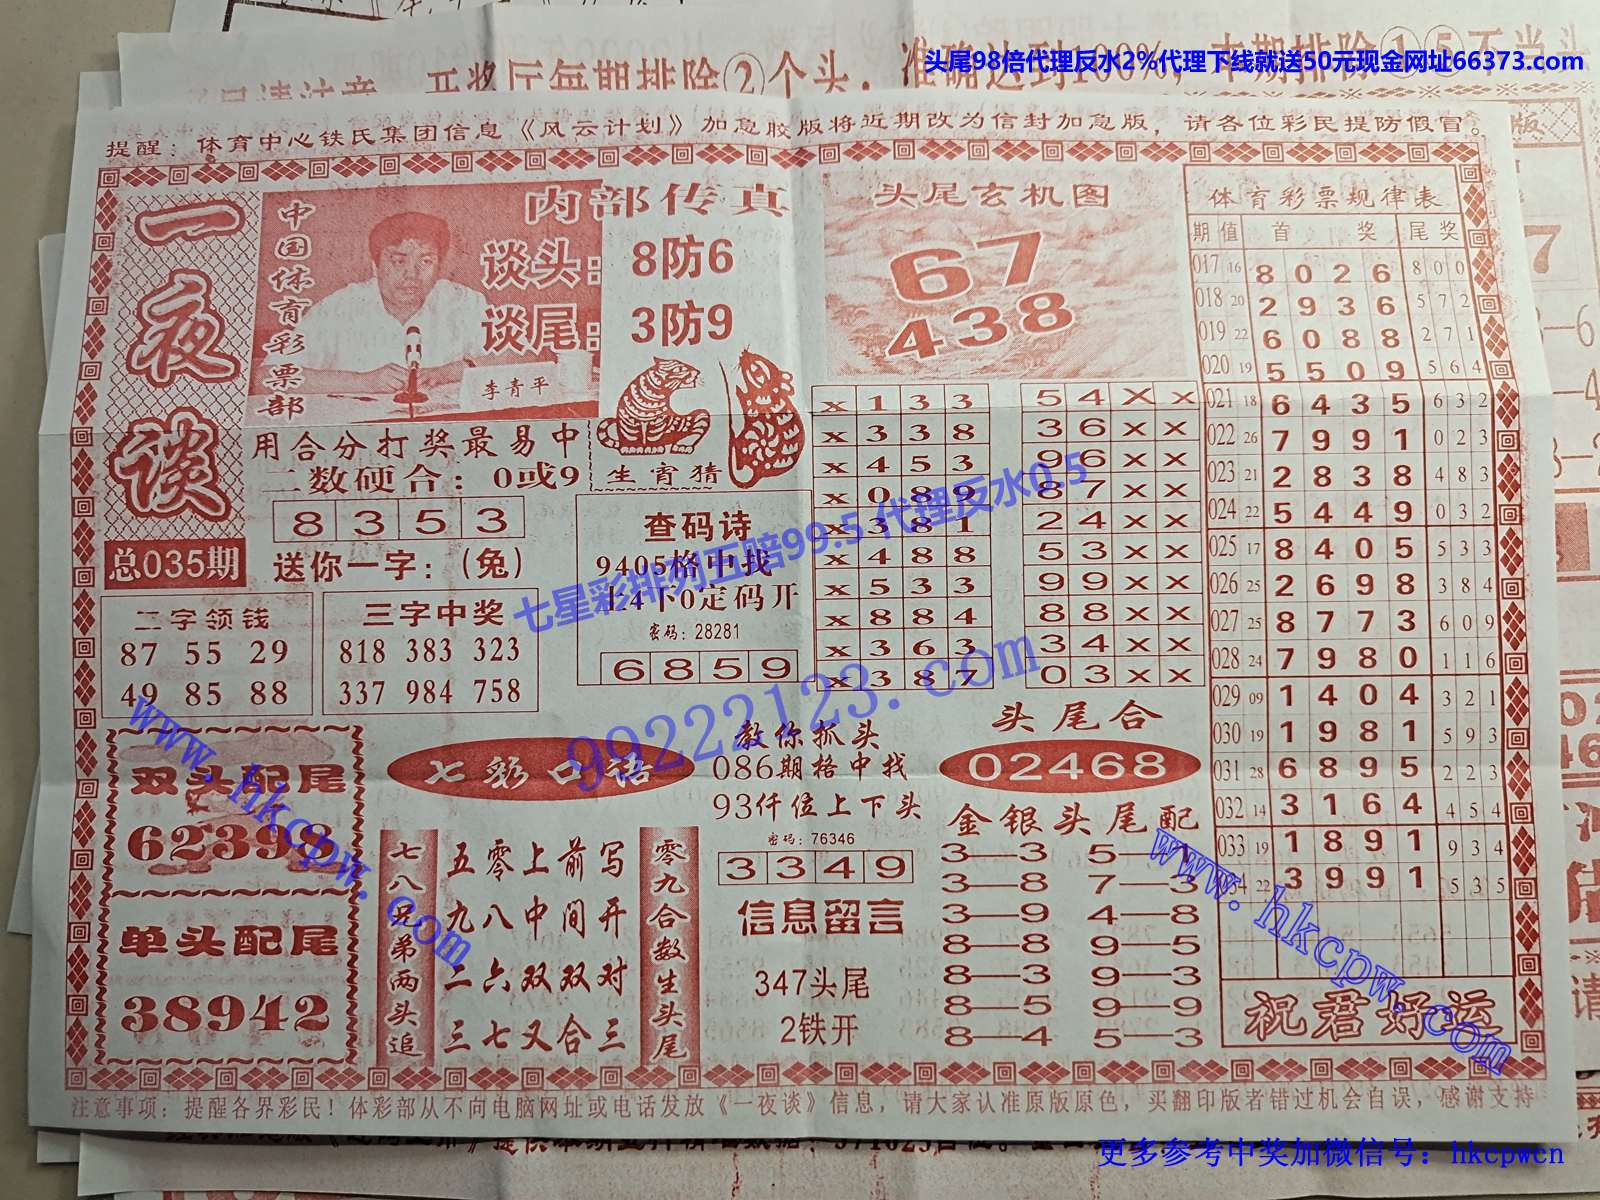 头尾98倍代理反水2%代理下线就送50元现金网址66373.com
开奖厅每期排除②个头，准确达到100%，本期排除①⑤不当头
提醒：体育中心铁氏集团信息《风云计划》加急胶版将近期改为信封加急版，请各位彩民提防假冒。
一夜谈
总035期
中国体育彩票部
内部传真
谈头：8防6
谈尾：3防9
李青平
用合分打奖最易中
二数硬合：0或9
8 3 5 3
送你一字：（兔）
生宵猜
头尾玄机图
67
438
二字领钱
87 55 29
49 85 88
三字中奖
818 383 323
337 984 758
查码诗
9405格中找
上4下0定码开
密码：28281
6 8 5 9
x 1 3 3
x 3 3 8
x 4 5 3
x 0 8 9
x 3 8 1
x 4 8 8
x 5 3 3
x 8 8 4
x 3 6 3
x 3 8 7
5 4 X X
3 6 X X
9 6 X X
8 7 X X
2 4 X X
5 3 X X
9 9 X X
8 8 X X
3 4 X X
0 3 X X
体育彩票规律表
期 值 首 奖 尾 奖
017 16 8 0 2 6 8 0 0
018 20 2 9 3 6 5 7 2
019 22 6 0 8 8 2 7 1
020 19 5 5 0 9 5 6 4
021 18 6 4 3 5 6 3 2
022 26 7 9 9 1 0 2 3
023 21 2 8 3 8 4 8 3
024 22 5 4 4 9 0 3 2
025 17 8 4 0 5 5 3 3
026 25 2 6 9 8 3 8 4
027 25 8 7 7 3 6 0 9
028 24 7 9 8 0 1 1 6
029 09 1 4 0 4 3 2 1
030 19 1 9 8 1 5 9 3
031 28 6 8 9 5 2 2 3
032 14 3 1 6 4 4 5 4
033 19 1 8 9 1 9 3 4
34 22 3 9 9 1 5 3 5
祝君好运
双头配尾
62398
单头配尾
38942
七彩口语
七八兄弟两头追
五零上前写
九八中间开
二六双双对
三七又合三
零九合数生头尾
教你抓头
086期格中找
93仟位上下头
密码：76346
3 3 4 9
信息留言
347头尾
2铁开
头尾合
02468
金银头尾配
3—3 5—1
3—8 7—3
3—9 4—8
8—8 9—5
8—3 9—3
8—5 9—9
8—4 5—3
七星彩排列五赔99.5 代理反水0.5
99222123.com
www.hkcpw.com
www.hkcpw.com
注意事项：提醒各界彩民！体彩部从不向电脑网址或电话发放《一夜谈》信息，请大家认准原版原色，买翻印版者错过机会自误，感谢支持
更多参考中奖加微信号：hkcpwcn